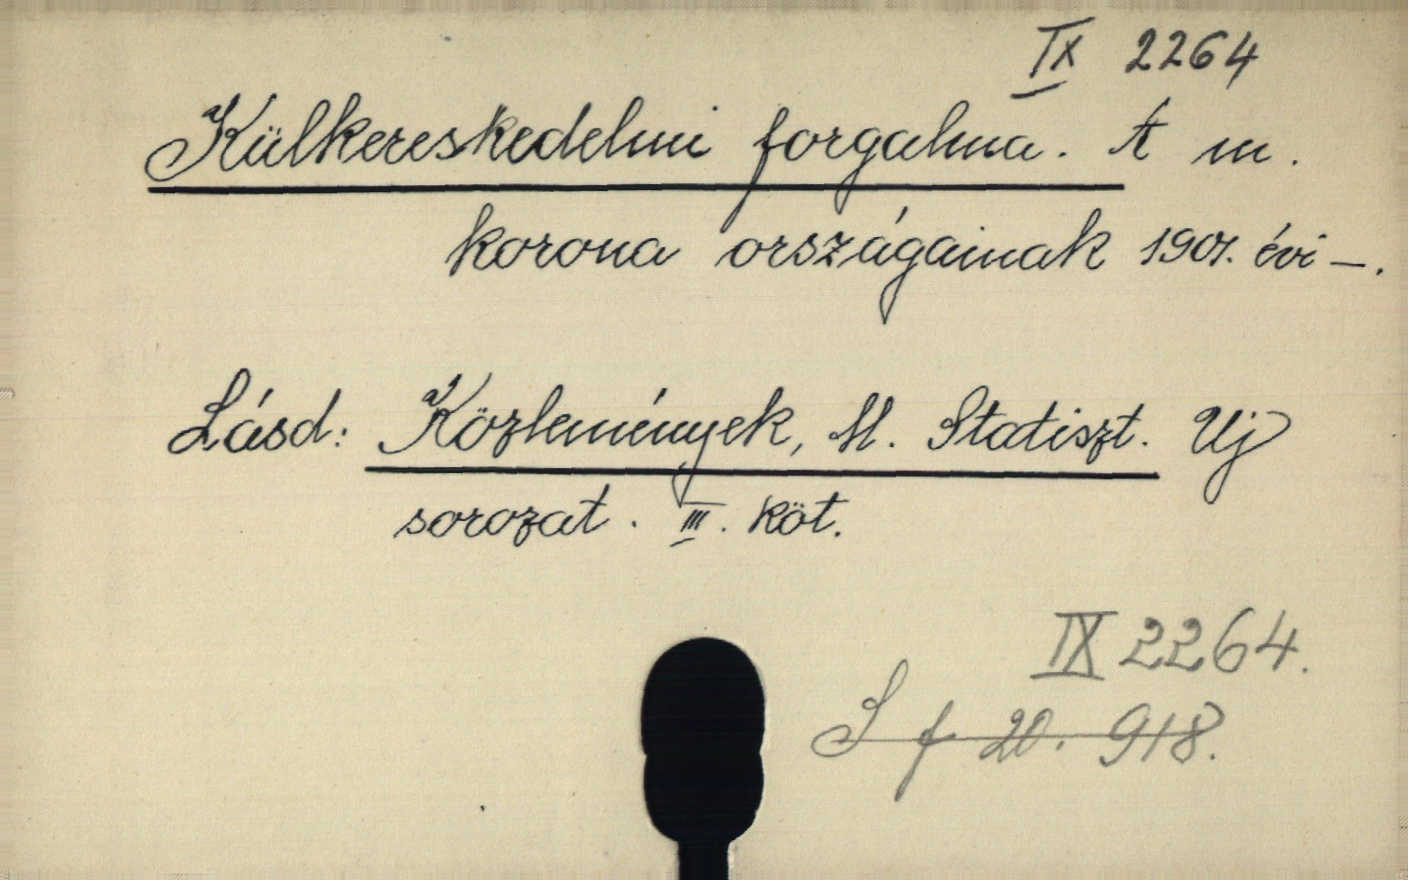 IX 2264
Külkereskedelmi forgalma. A m.
korona országainak 1901. évi –.
Lásd: Közlemények, M. Statiszt. Uj
sorozat. III. köt.
IX 2264.
S f 20. 918.